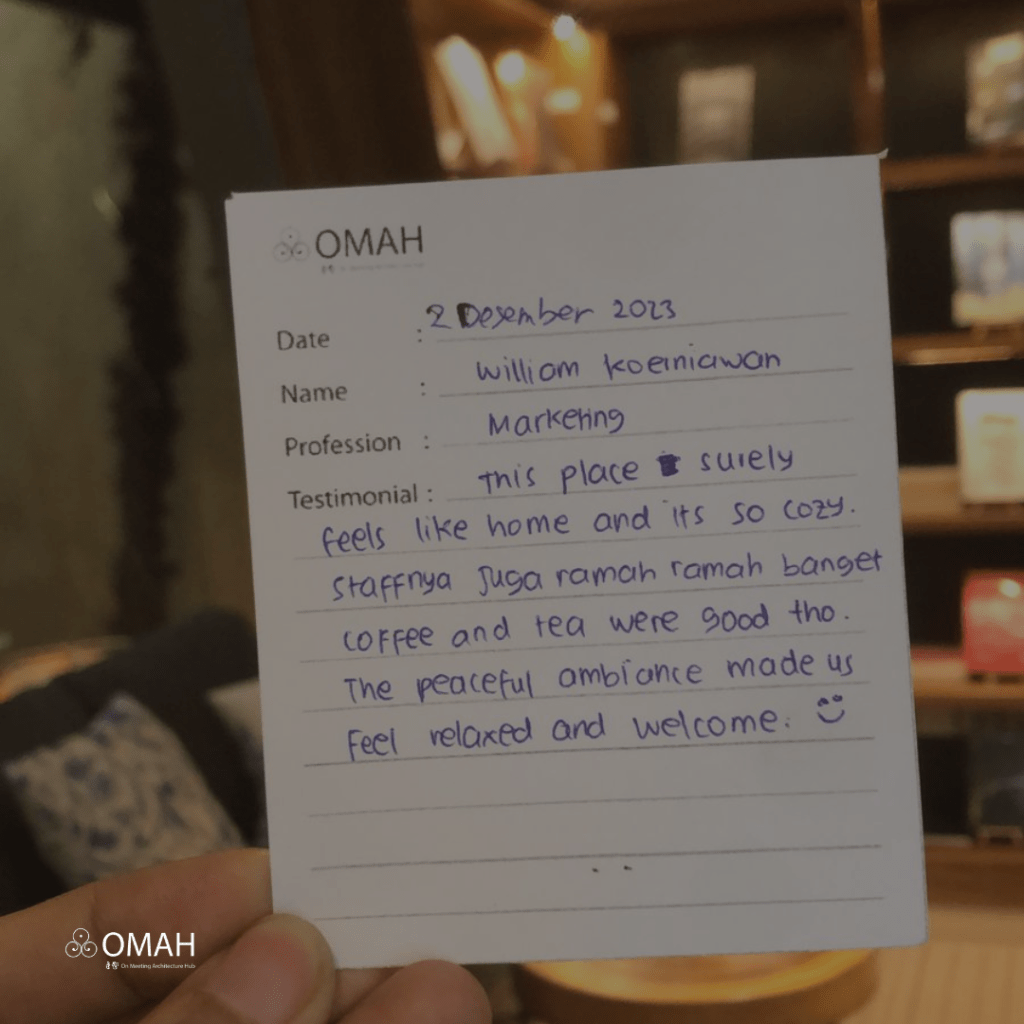 OMAH
Date : 2 Desember 2023
Name : William Koerniawan
Profession : Marketing
Testimonial : This place surely
feels like home and its so cozy.
staffnya juga ramah ramah banget
coffee and tea were good tho.
The peaceful ambiance made us
Feel relaxed and welcome.
OMAH
On Meeting Architecture Hub